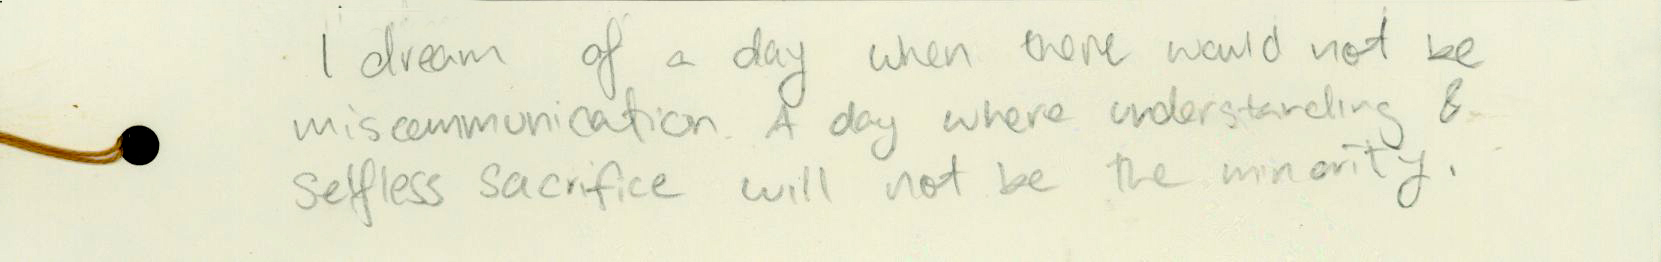 I dream of a day when there would not be
miscommunication. A day where understanding &
selfless sacrifice will not be the minority.